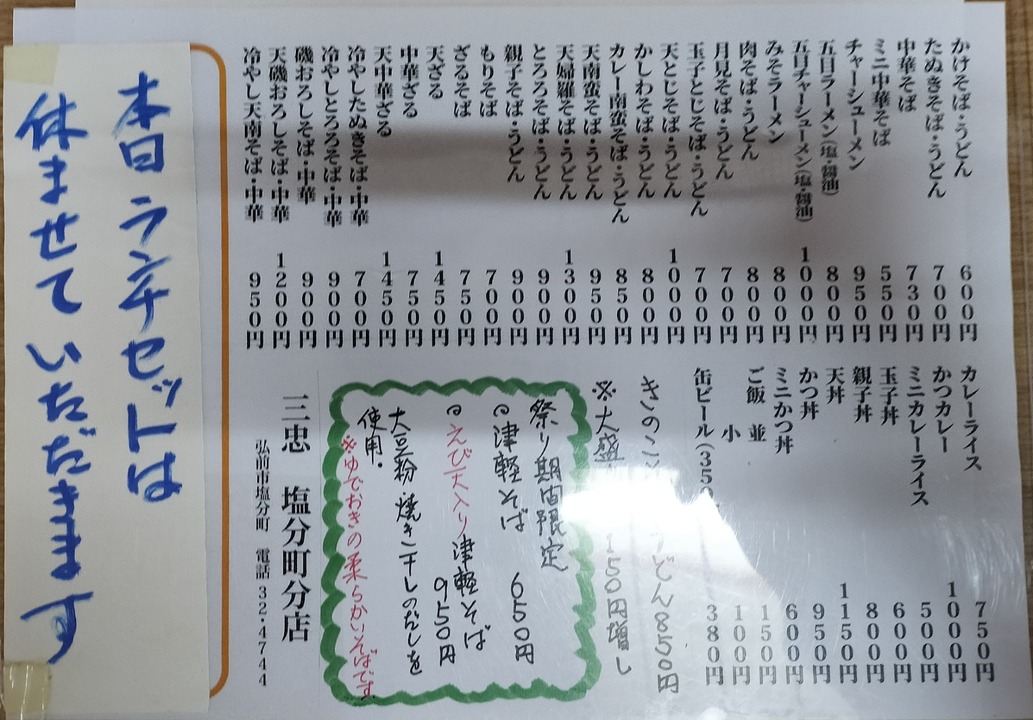 かけそば・うどん 600円
たぬきそば・うどん 700円
中華そば 730円
ミニ中華そば 550円
チャーシューメン 950円
五目ラーメン(塩・醤油) 800円
五目チャーシューメン(塩・醤油) 1000円
みそラーメン 800円
肉そば・うどん 800円
月見そば・うどん 700円
玉子とじそば・うどん 700円
天とじそば・うどん 1000円
かしわそば・うどん 800円
カレー南蛮そば・うどん 850円
天南蛮そば・うどん 950円
天婦羅そば・うどん 1300円
とろろそば・うどん 900円
親子そば・うどん 900円
もりそば 700円
ざるそば 750円
天ざる 1450円
中華ざる 750円
天中華ざる 1450円
冷やしたぬきそば・中華 700円
冷やしとろろそば・中華 900円
磯おろしそば・中華 900円
天磯おろしそば・中華 1200円
冷やし天南そば・中華 950円
カレーライス 750円
かつカレー 1000円
ミニカレーライス 500円
玉子丼 600円
親子丼 800円
天丼 1150円
かつ丼 950円
ミニかつ丼 600円
ご飯 並 150円
小 100円
缶ビール(35 380円
きのこ うどん850円
※大盛 150円増し
祭り期間限定
◎津軽そば 650円
◎えび天入り津軽そば 950円
大豆粉 焼き干しのだしを
使用.
※ゆでおきの柔らかいそばです
三忠 塩分町分店
弘前市塩分町 電話 32・4744
本日ランチセットは
休ませていただきます